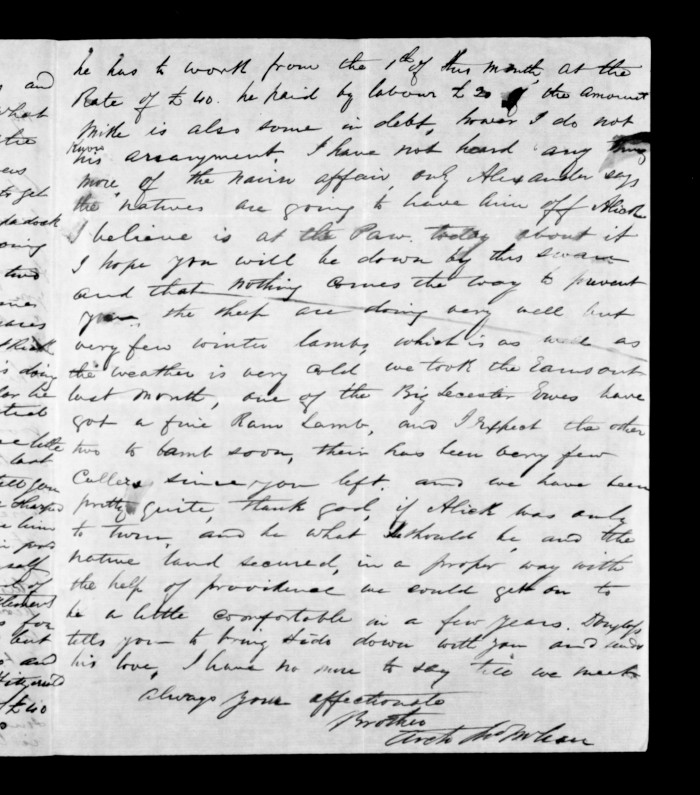 he has to work from the 1th of this month, at the
Rate of £40. he paid by labour £20 of the amount
Mike is also some in debt, hower I do not
Know
his arrangment. I have not heard any thing
more of the nairn affair, only Alexander says
the natives are going to have him off Alick
I believe is at the Paw. today about it
I hope you will be down by this
and that nothing comes the way to prevent
you. the sheep are doing very well but
very few winter lambs, which is as well as
the weather is very cold we took the Rams out
last month, one of the Big Lecester Ewes have
got a fine Ram Lamb, and I expect the other
two to lamb soon, their has been very few
Callers since you left. and we have been
pretty quite, thank god, if Alick was only
to turn, and be what he should be, and the
native land secured, in a proper way with
the help of providence we could get on to
be a little comfortable in a few years. Douglas
tells you to bring down with you and sends
his love, I have no more to say till we meet
always your affectionate
Brother
Arch McLean
and
what
the
to get
doing
he
little
last
tell you
him
self
of
for
but
and
£40